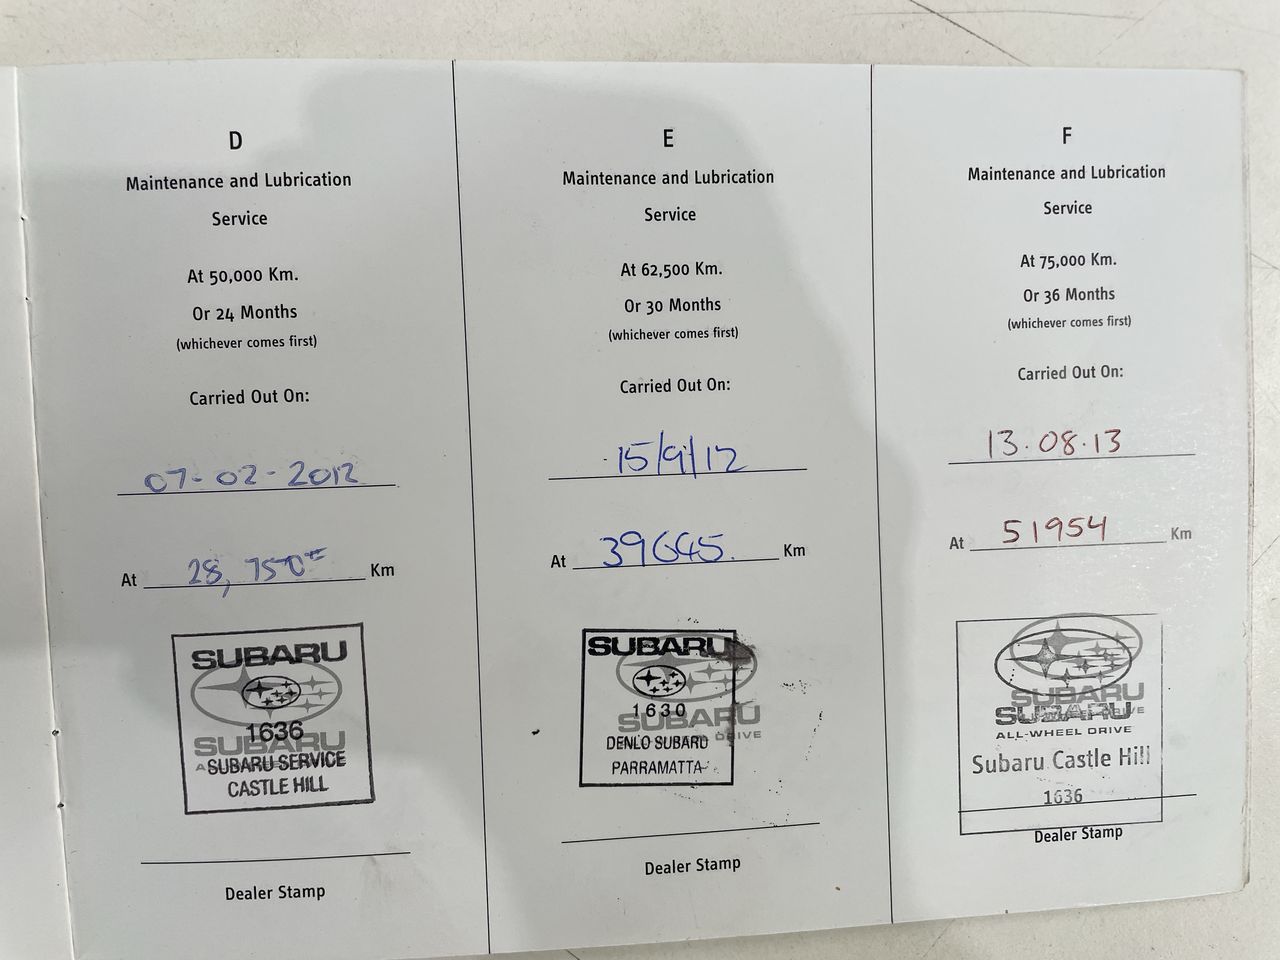 D
Maintenance and Lubrication
Service
At 50,000 Km.
Or 24 Months
(whichever comes first)
Carried Out On:
07-02-2012
At 28,750 Km
SUBARU
1636
SUBARU
SUBARU SERVICE
CASTLE HILL
Dealer Stamp
E
Maintenance and Lubrication
Service
At 62,500 Km.
Or 30 Months
(whichever comes first)
Carried Out On:
15/9/12
At 39645. Km
SUBARU
1630
SUBARU
DRIVE
DENLO SUBARU
PARRAMATTA
Dealer Stamp
F
Maintenance and Lubrication
Service
At 75,000 Km.
Or 36 Months
(whichever comes first)
Carried Out On:
13.08.13
At 51954 Km
SUBARU
SUBARU
ALL-WHEEL DRIVE
Subaru Castle Hill
1636
Dealer Stamp